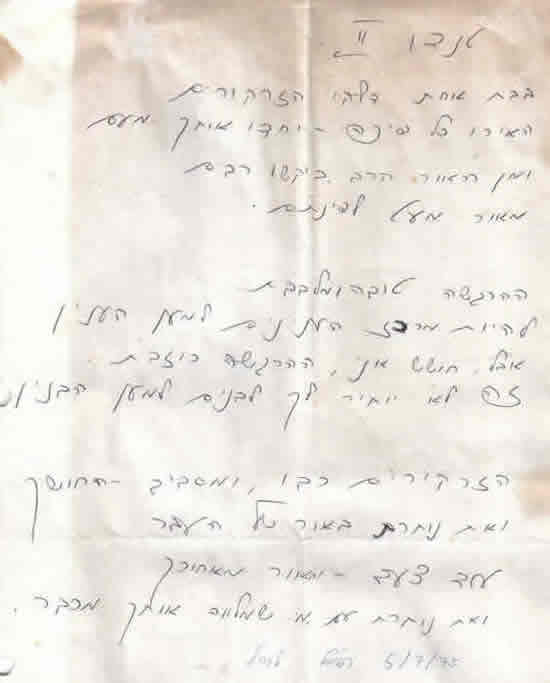 II
בבת אחת דלקו הזרקורים
האירו כל פינה - יחדו אותך מעט
ומן האור הרב ביקשו רבים
מאור מעט לפינתם.
ההרגשה טובה ומלבבת
להיות מרכז הענינים למען הענין
אבל, חושש אני, ההרגשה כוזבת
זה לא יותיר לך לבנים למען הבנין
הזרקורים כבו, ומסביב - החושך
ואת נותרת באור של העבר
עוד צעד - והאור מאחוריך
ואת נותרת עם מי שמלווה אותך מכבר.
5/7/75